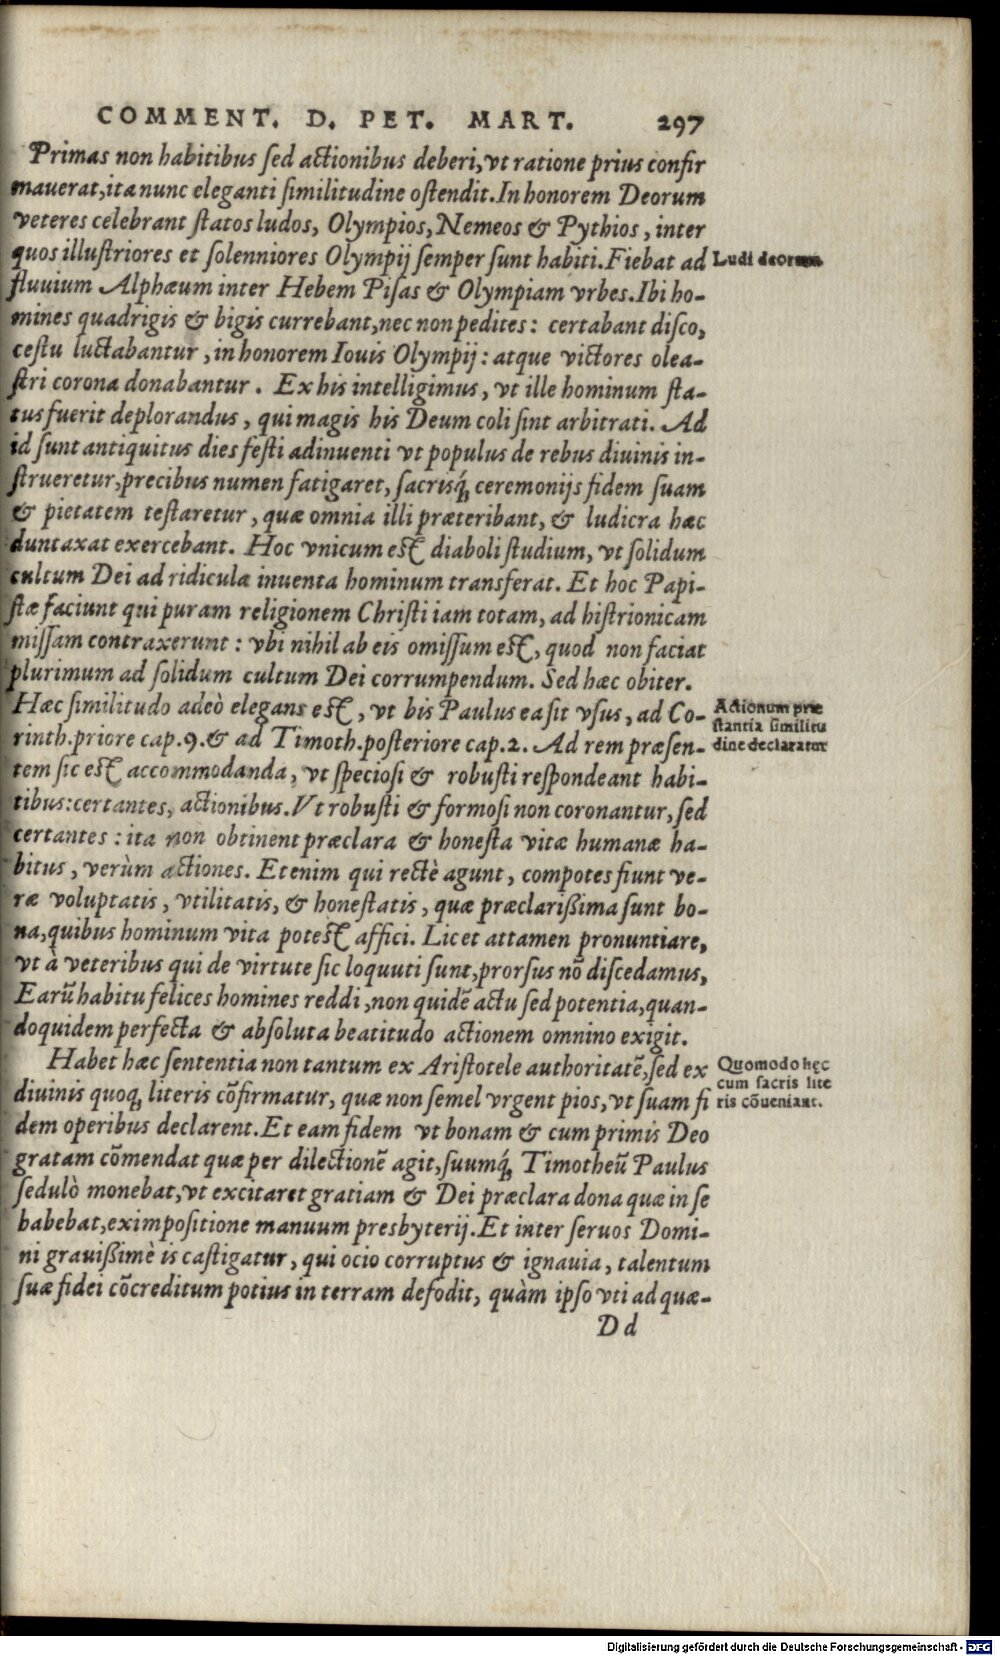 COMMENT. D. PET. MART. 297
Primas non habitibus sed actionibus deberi, vt ratione prius confir
mauerat, ita nunc eleganti similitudine ostendit. In honorem Deorum
veteres celebrant statos ludos, Olympios, Nemeos & Pythios, inter
quos illustriores et solenniores Olympij semper sunt habiti. Fiebat ad
Ludi deorum
fluuium Alphæum inter Hebem Pisas & Olympiam vrbes. Ibi ho-
mines quadrigis & bigis currebant, nec non pedites: certabant disco,
cestu luctabantur, in honorem Iouis Olympij: atque victores olea-
stri corona donabantur. Ex his intelligimus, vt ille hominum sta-
tus fuerit deplorandus, qui magis his Deum coli sint arbitrati. Ad
id sunt antiquitus dies festi adinuenti vt populus de rebus diuinis in-
strueretur, precibus numen fatigaret, sacrisq́; ceremonijs fidem suam
& pietatem testaretur, quæ omnia illi præteribant, & ludicra hæc
duntaxat exercebant. Hoc vnicum est diaboli studium, vt solidum
cultum Dei ad ridicula inuenta hominum transferat. Et hoc Papi-
stæ faciunt qui puram religionem Christi iam totam, ad histrionicam
missam contraxerunt: vbi nihil ab eis omissum est, quod non faciat
plurimum ad solidum cultum Dei corrumpendum. Sed hæc obiter.
Hæc similitudo adeò elegans est, vt bis Paulus ea sit vsus, ad Co-
rinth. priore cap. 9. & ad Timoth. posteriore cap. 2. Ad rem præsen-
Actionum præ
stantia similitu
dine declaratur
tem sic est accommodanda, vt speciosi & robusti respondeant habi-
tibus: certantes, actionibus. Vt robusti & formosi non coronantur, sed
certantes: ita non obtinent præclara & honesta vitæ humanæ ha-
bitus, verùm actiones. Etenim qui rectè agunt, compotes fiunt ve-
ræ voluptatis, vtilitatis, & honestatis, quæ præclarißima sunt bo-
na, quibus hominum vita potest affici. Licet attamen pronuntiare,
vt à veteribus qui de virtute sic loquuti sunt, prorsus nō discedamus,
Earū habitu felices homines reddi, non quidē actu sed potentia, quan-
doquidem perfecta & absoluta beatitudo actionem omnino exigit.
Habet hæc sententia non tantum ex Aristotele authoritatē, sed ex
Quomodo hęc
cum sacris lite
ris cōueniant.
diuinis quoq; literis cōfirmatur, quæ non semel vrgent pios, vt suam fi
dem operibus declarent. Et eam fidem vt bonam & cum primis Deo
gratam cōmendat quæ per dilectionē agit, suumq́; Timotheū Paulus
sedulò monebat, vt excitaret gratiam & Dei præclara dona quæ in se
habebat, ex impositione manuum presbyterij. Et inter seruos Domi-
ni grauißimè is castigatur, qui ocio corruptus & ignauia, talentum
suæ fidei cōcreditum potius in terram defodit, quàm ipso vti ad quæ-
Dd
Digitalisierung gefördert durch die Deutsche Forschungsgemeinschaft - DFG